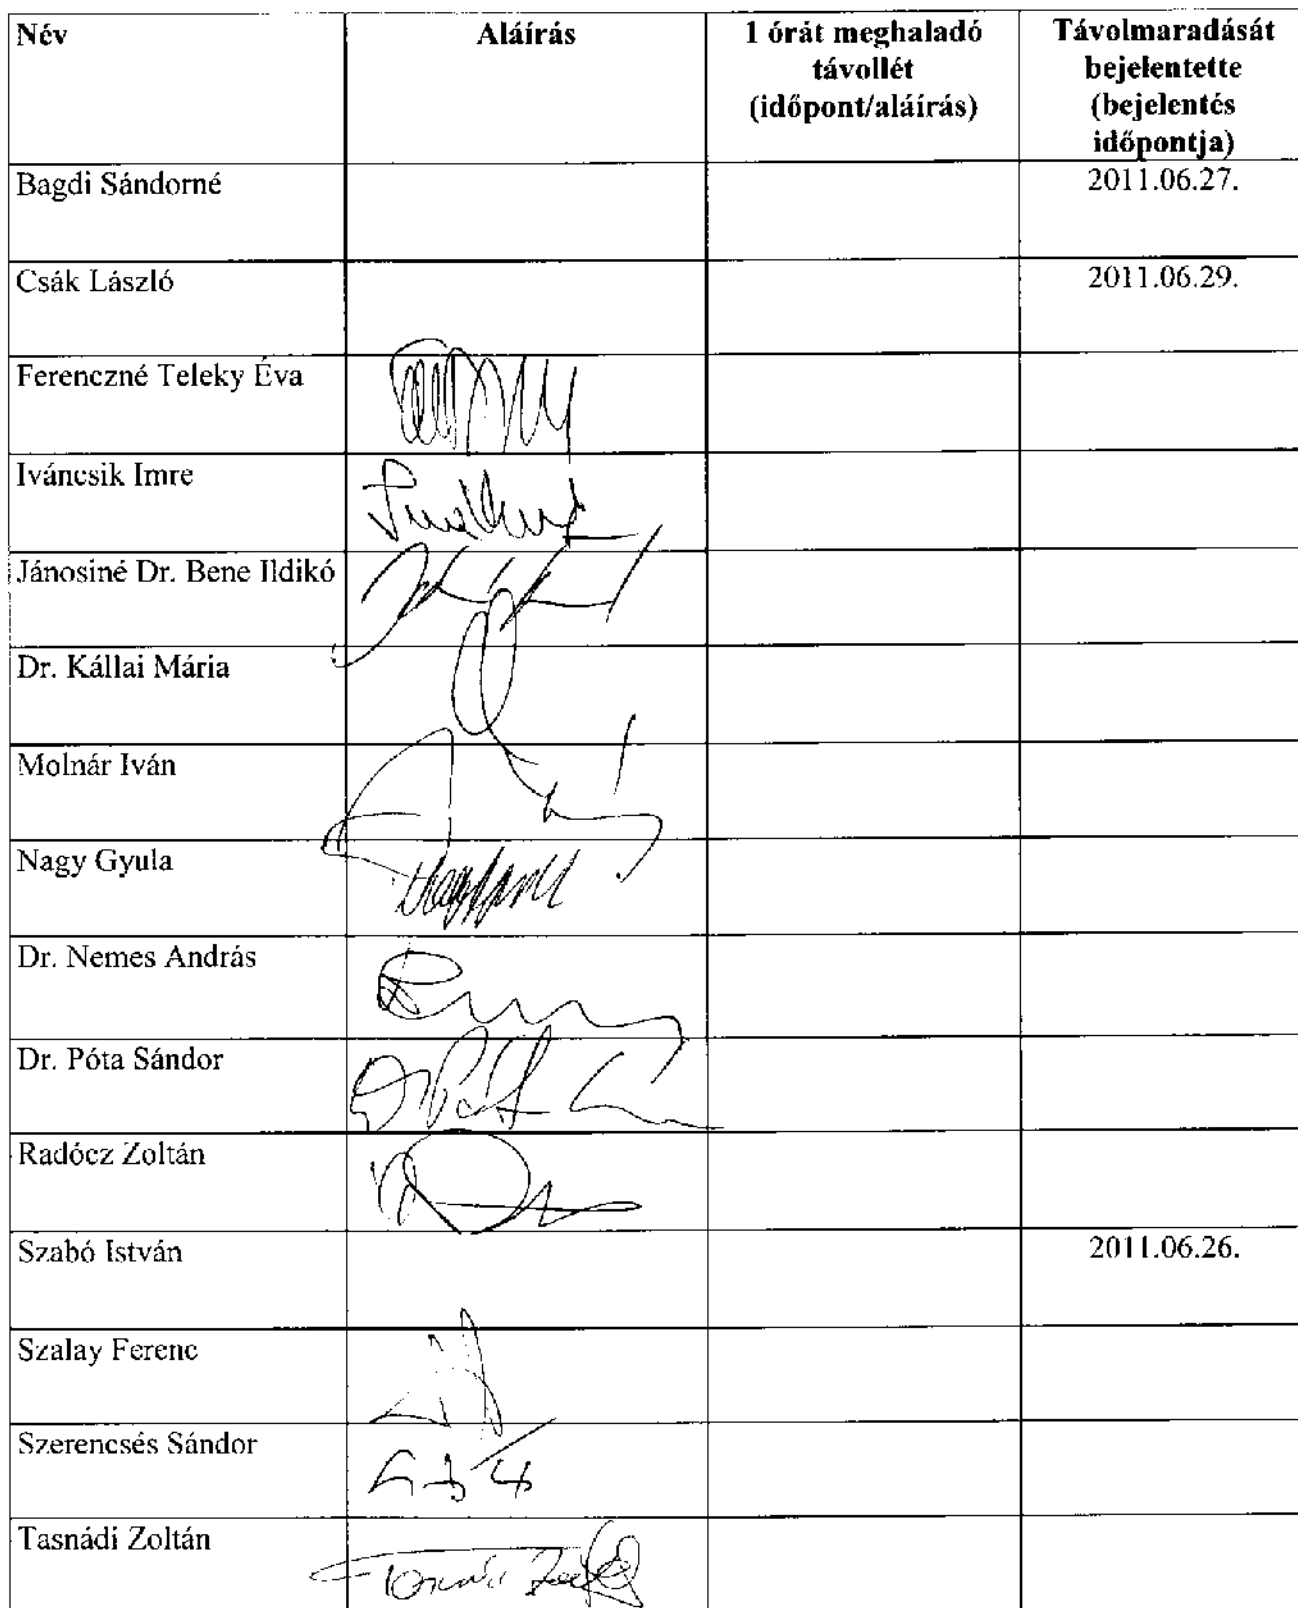 Név Aláírás 1 órát meghaladó Távolmaradását
távollét bejelentette
(időpont/aláírás) (bejelentés
időpontja)
Bagdi Sándorné 2011.06.27.
Csák László 2011.06.29.
Ferenczné Teleky Éva
Iváncsik Imre
Jánosiné Dr. Bene Ildikó
Dr. Kállai Mária
Molnár Iván
Nagy Gyula
Dr. Nemes András
Dr. Póta Sándor
Radócz Zoltán
Szabó István 2011.06.26.
Szalay Ferenc
Szerencsés Sándor
Tasnádi Zoltán